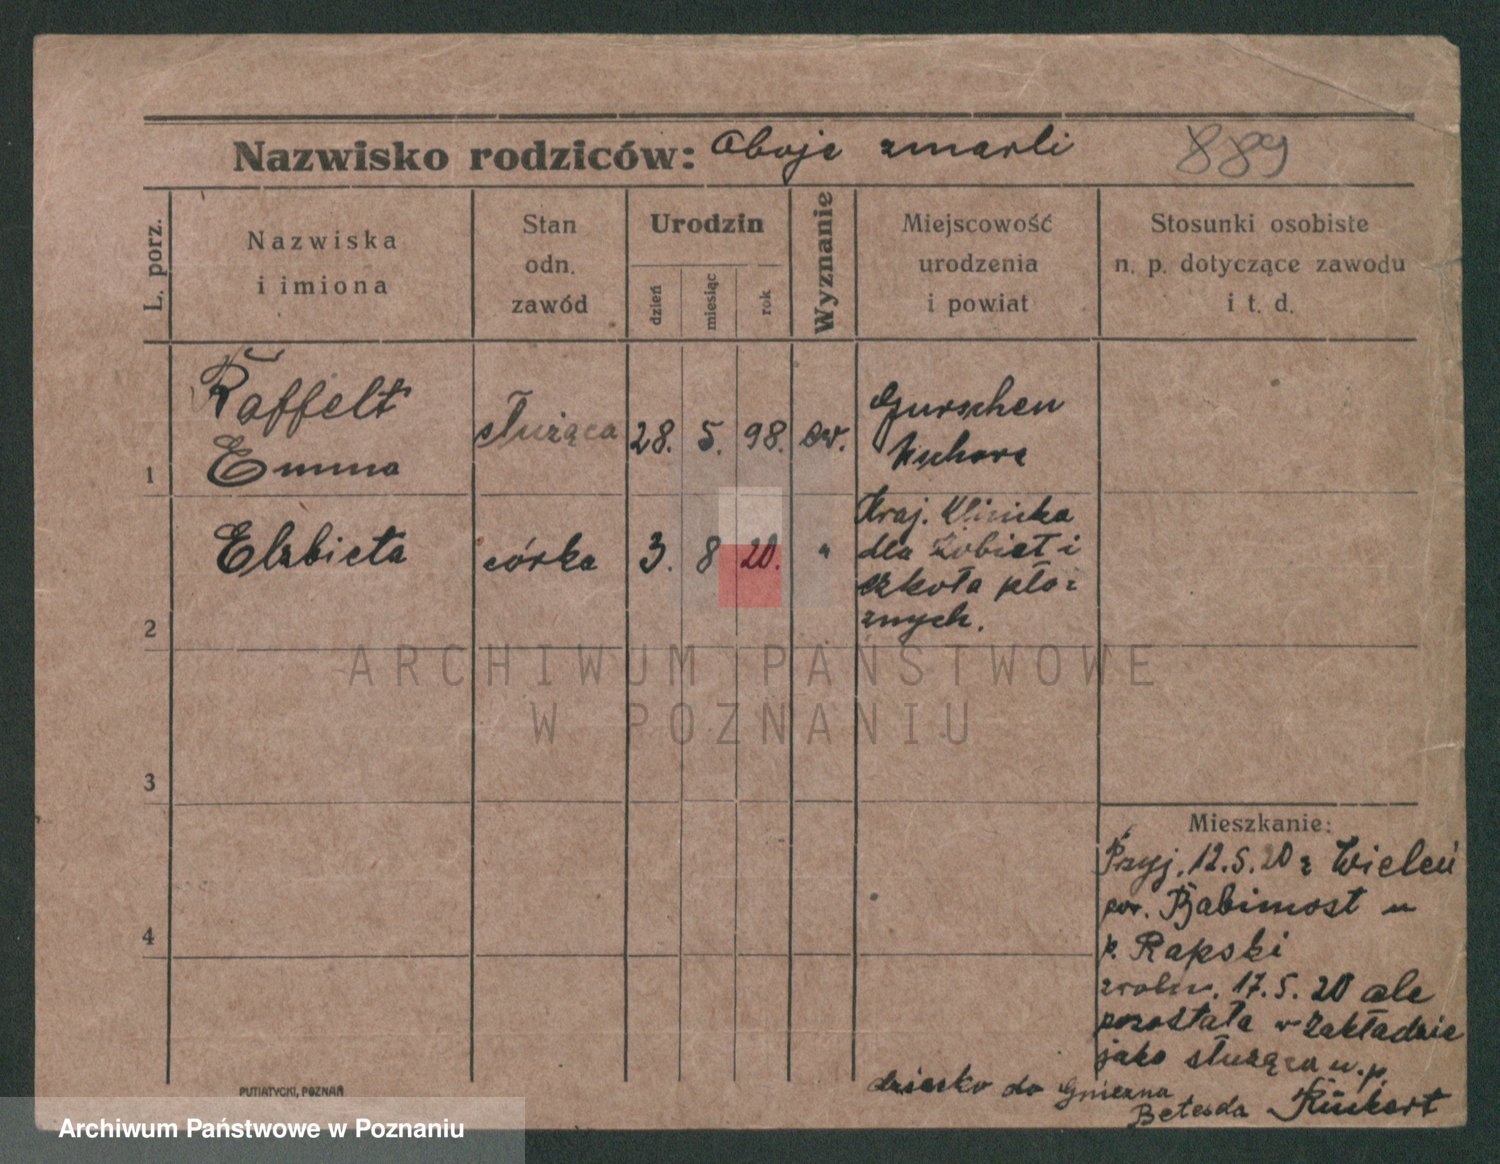 Nazwisko rodziców: Oboje zmarli 889
L. porz.
Nazwiska
i imiona
Stan
odn.
zawód
Urodzin
dzień
miesiąc
rok
Wyznanie
Miejscowość
urodzenia
i powiat
Stosunki osobiste
n. p. dotyczące zawodu
i t. d.
1
Raffelt
Emma
służąca
28. 5. 98. ew.
Gurschen
2
Elzbieta
córka
3. 8 20. "
Kraj. Klinika
dla kobiet i
szkoła poło=
żnych.
3
4
Mieszkanie:
Przyj. 12.5.20 z Wieleń
pow. Babimost u
p. Rapski
zwoln. 17.5.20 ale
pozostała w Zakładzie
jako służąca u. p.
Rückert
dziecko do Gniezna
Betesda
PUTIATYCKI, POZNAŃ
ARCHIWUM PAŃSTWOWE
W POZNANIU
Archiwum Państwowe w Poznaniu